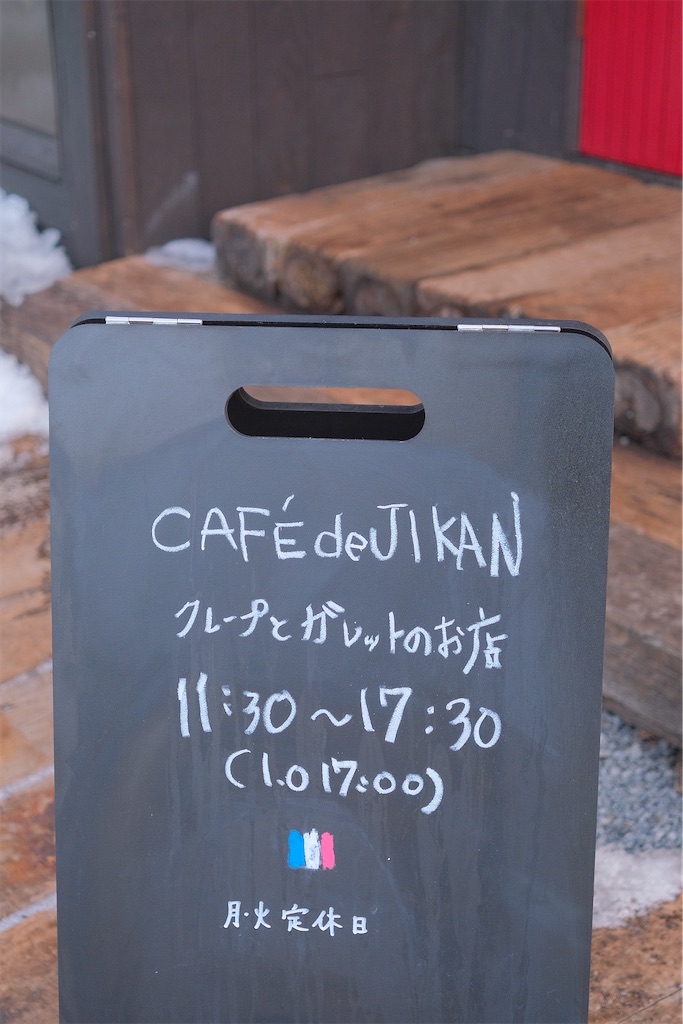 CAFÉ de JIKAN
クレープとガレットのお店
11:30〜17:30
(L.O 17:00)
月・火 定休日